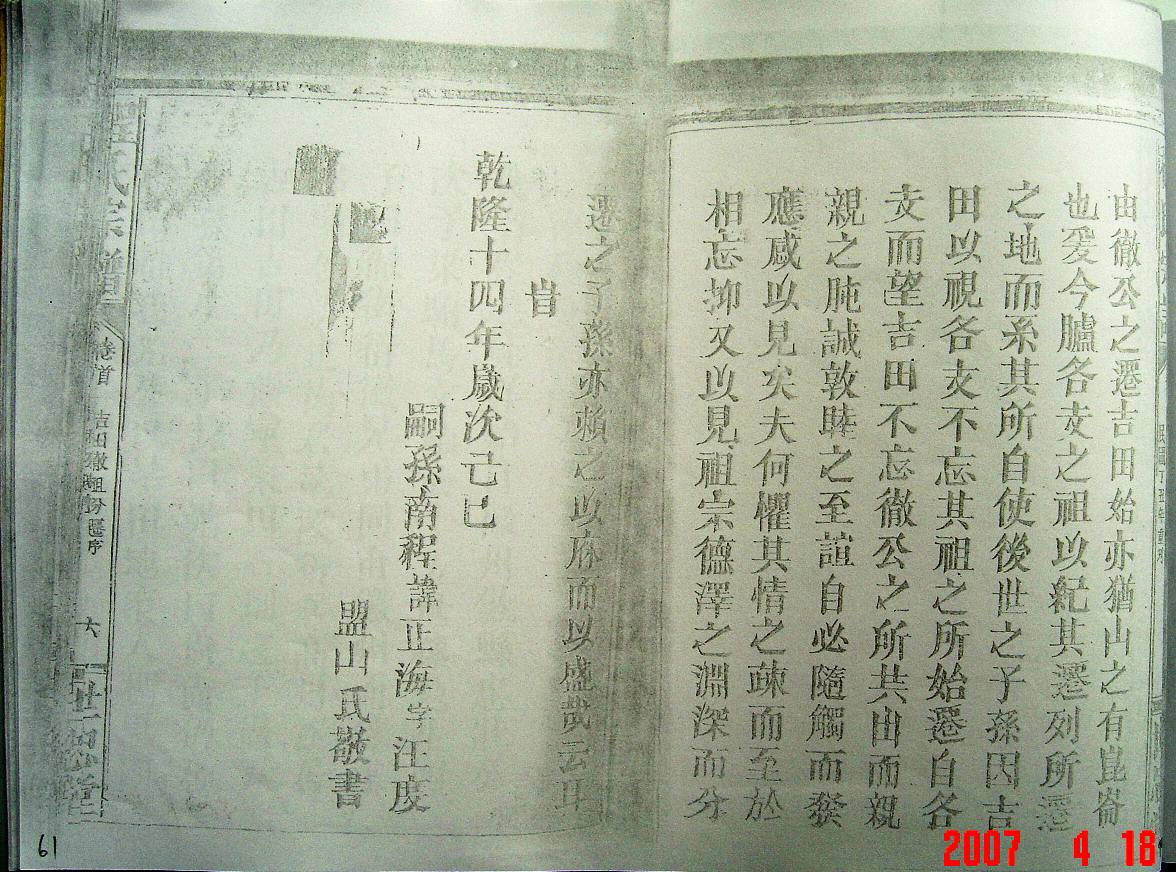 由徹公之遷吉田始亦猶山之有崑崙
也爰今臚各支之祖以紀其遷列所遷
之地而系其所自使後世之子孫因吉
田以視各支不忘其祖之所始遷自各
支而望吉田不忘徹公之所共由而親
親之肫誠敦睦之至誼自必隨觸而發
應感以見矣夫何懼其情之疎而至於
相忘抑又以見祖宗德澤之淵深而分
遷之子孫亦賴之以庥而以盛哉云耳
旹
乾隆十四年歲次己巳
嗣孫南程諱正海字汪度
盟山氏敬書
程氏宗譜
卷首
吉田徹祖分遷序
六
世忠堂
61
2007 4 18